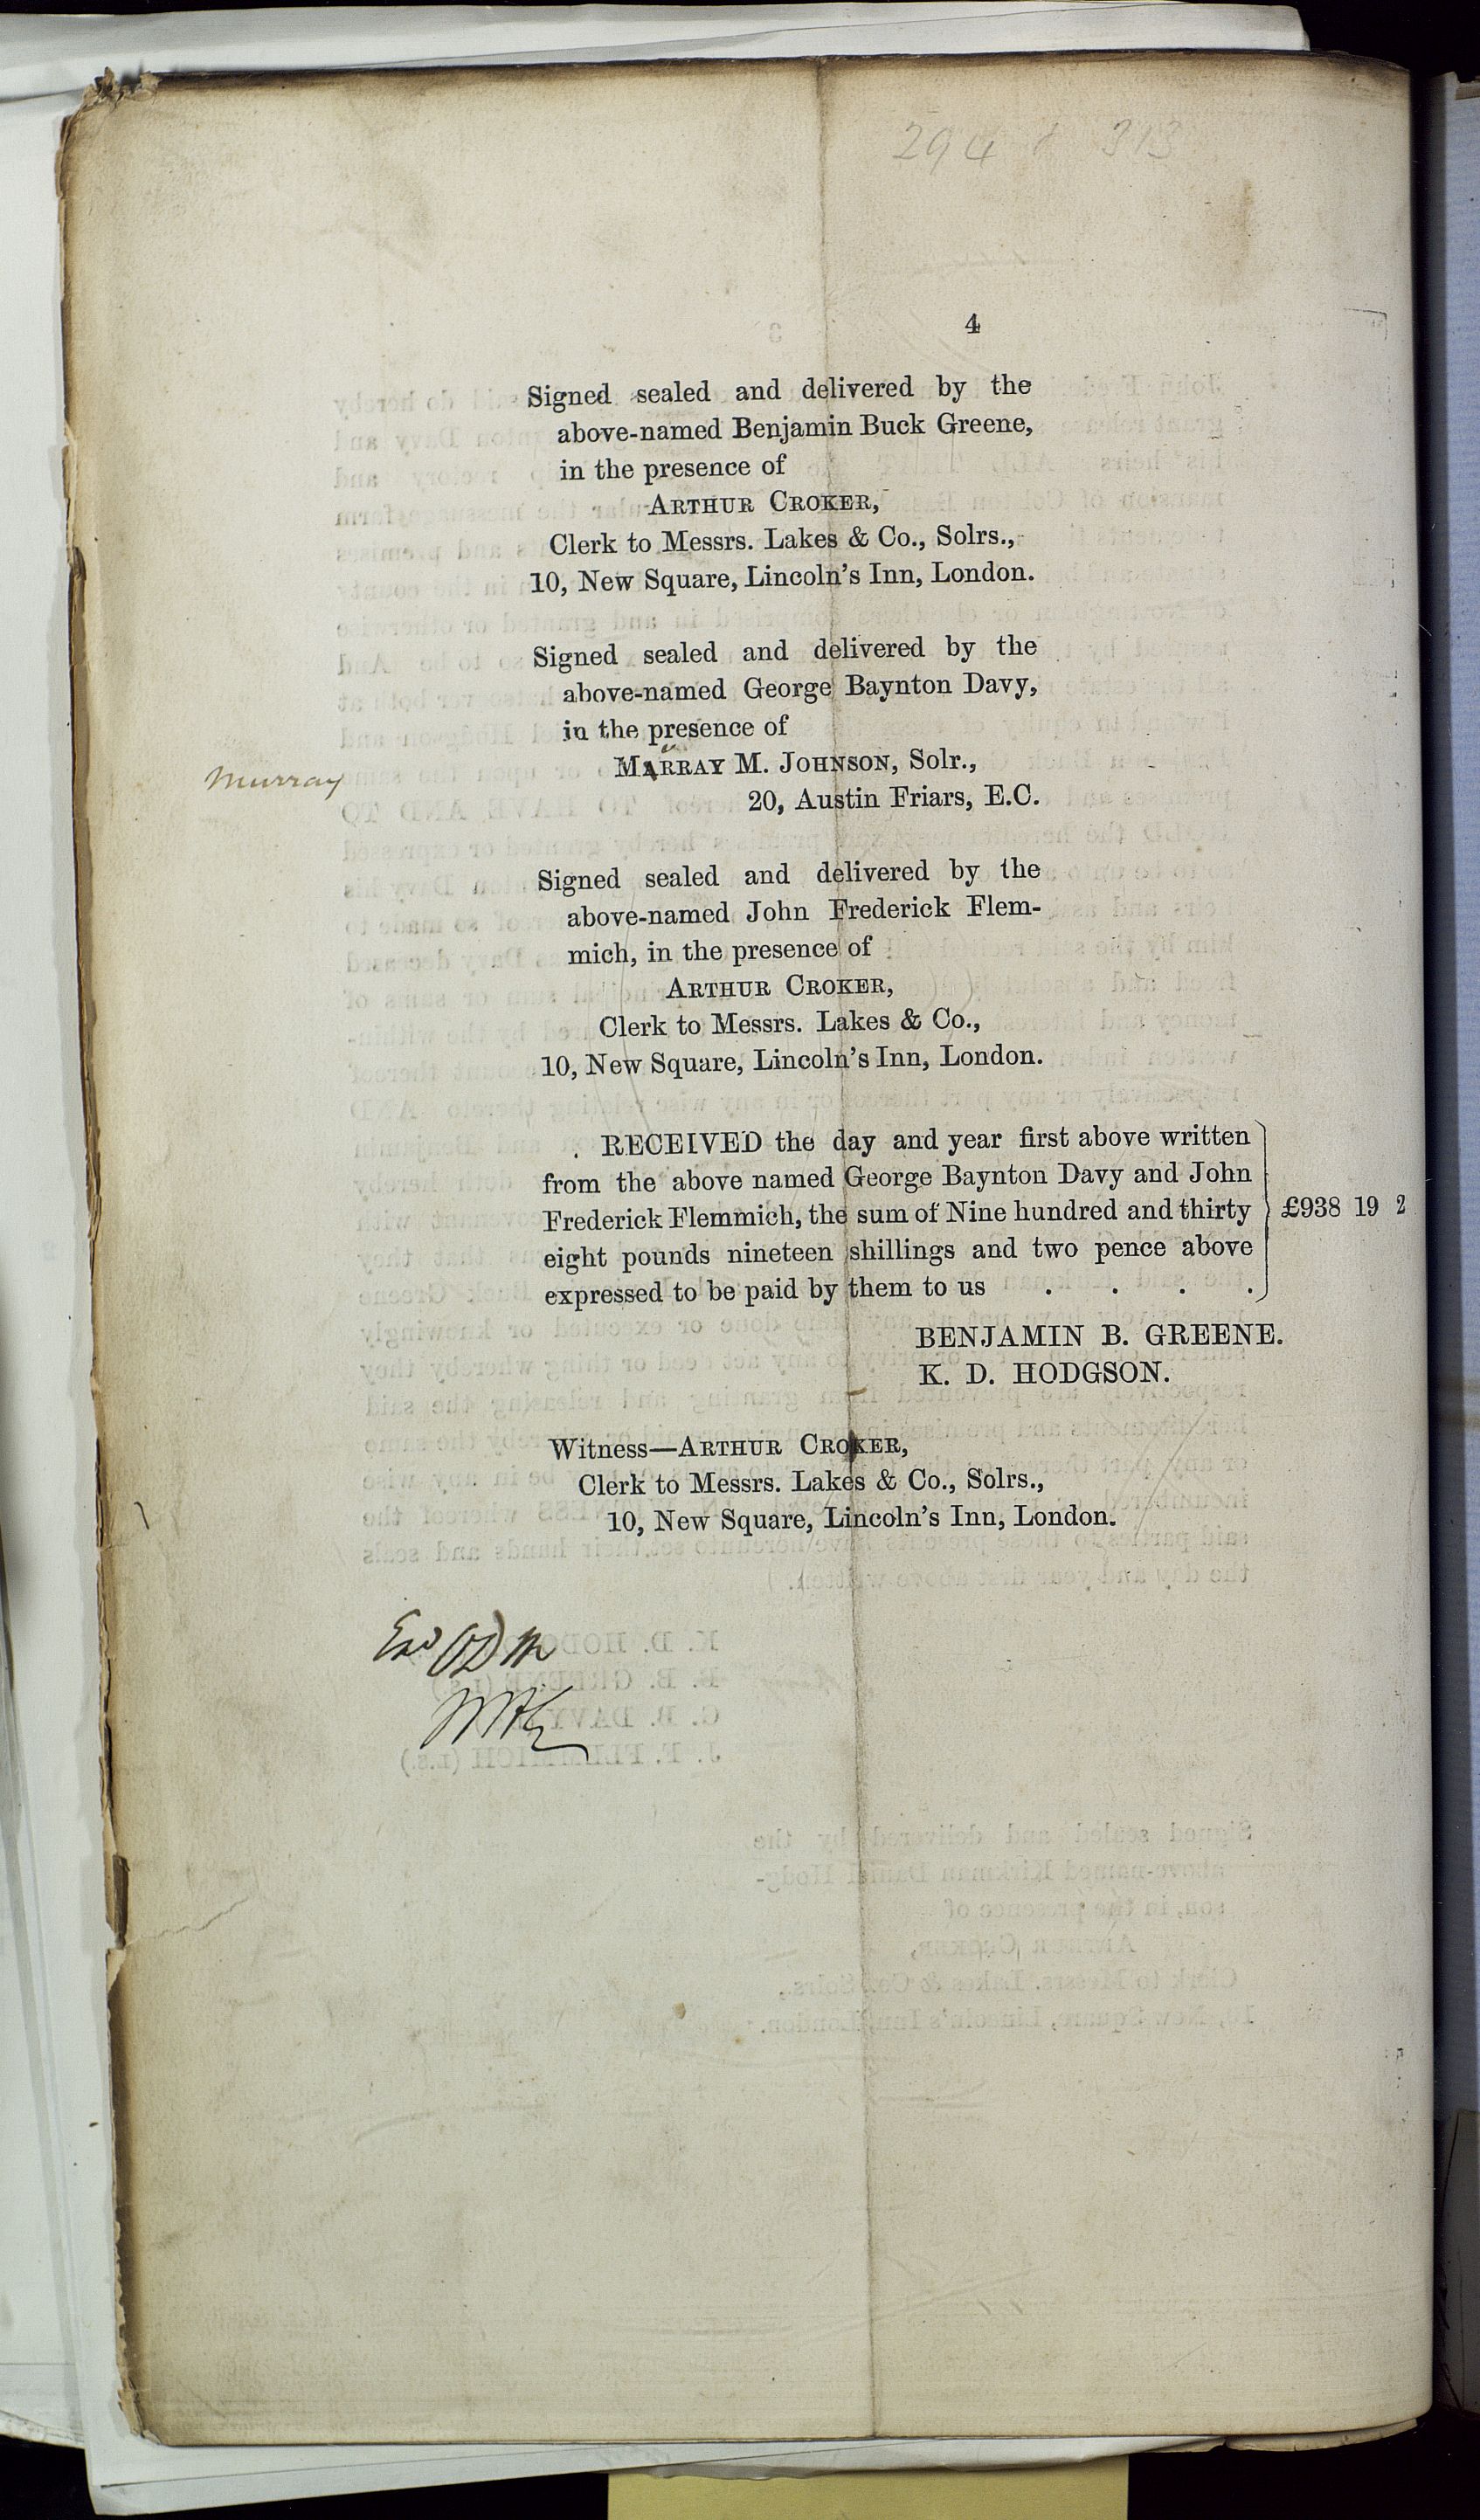 294 & 313
4
Signed sealed and delivered by the
above-named Benjamin Buck Greene,
in the presence of
ARTHUR CROKER,
Clerk to Messrs. Lakes & Co., Solrs.,
10, New Square, Lincoln's Inn, London.
Signed sealed and delivered by the
above-named George Baynton Davy,
in the presence of
Murray
MARRAY M. JOHNSON, Solr.,
20, Austin Friars, E.C.
Signed sealed and delivered by the
above-named John Frederick Flem-
mich, in the presence of
ARTHUR CROKER,
Clerk to Messrs. Lakes & Co.,
10, New Square, Lincoln's Inn, London.
RECEIVED the day and year first above written
from the above named George Baynton Davy and John
Frederick Flemmich, the sum of Nine hundred and thirty
eight pounds nineteen shillings and two pence above
expressed to be paid by them to us . . . .
£938 19 2
BENJAMIN B. GREENE.
K. D. HODGSON.
Witness—ARTHUR CROKER,
Clerk to Messrs. Lakes & Co., Solrs.,
10, New Square, Lincoln's Inn, London.